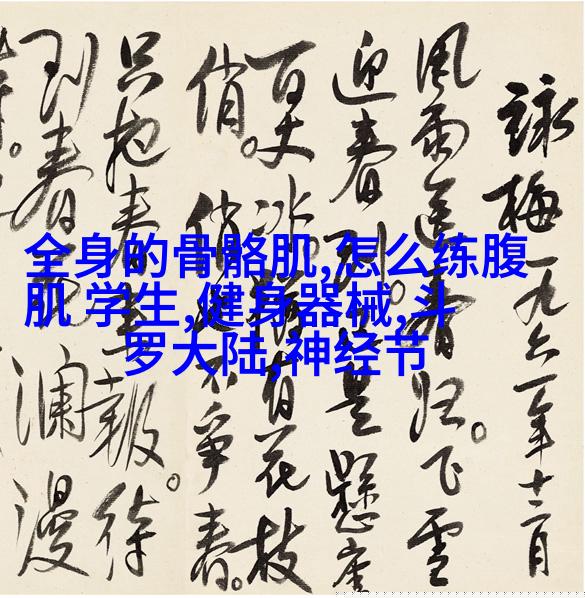 全身的骨骼肌,怎么练腹
肌 学生,健身器械,斗
罗大陆,神经节
詠梅一九六一年十二月
風雨送春归。飞雪
迎春到。已是懸崖
百丈冰。犹有花枝
俏。俏也不爭春。
只把春来報。待
到春瀾漫